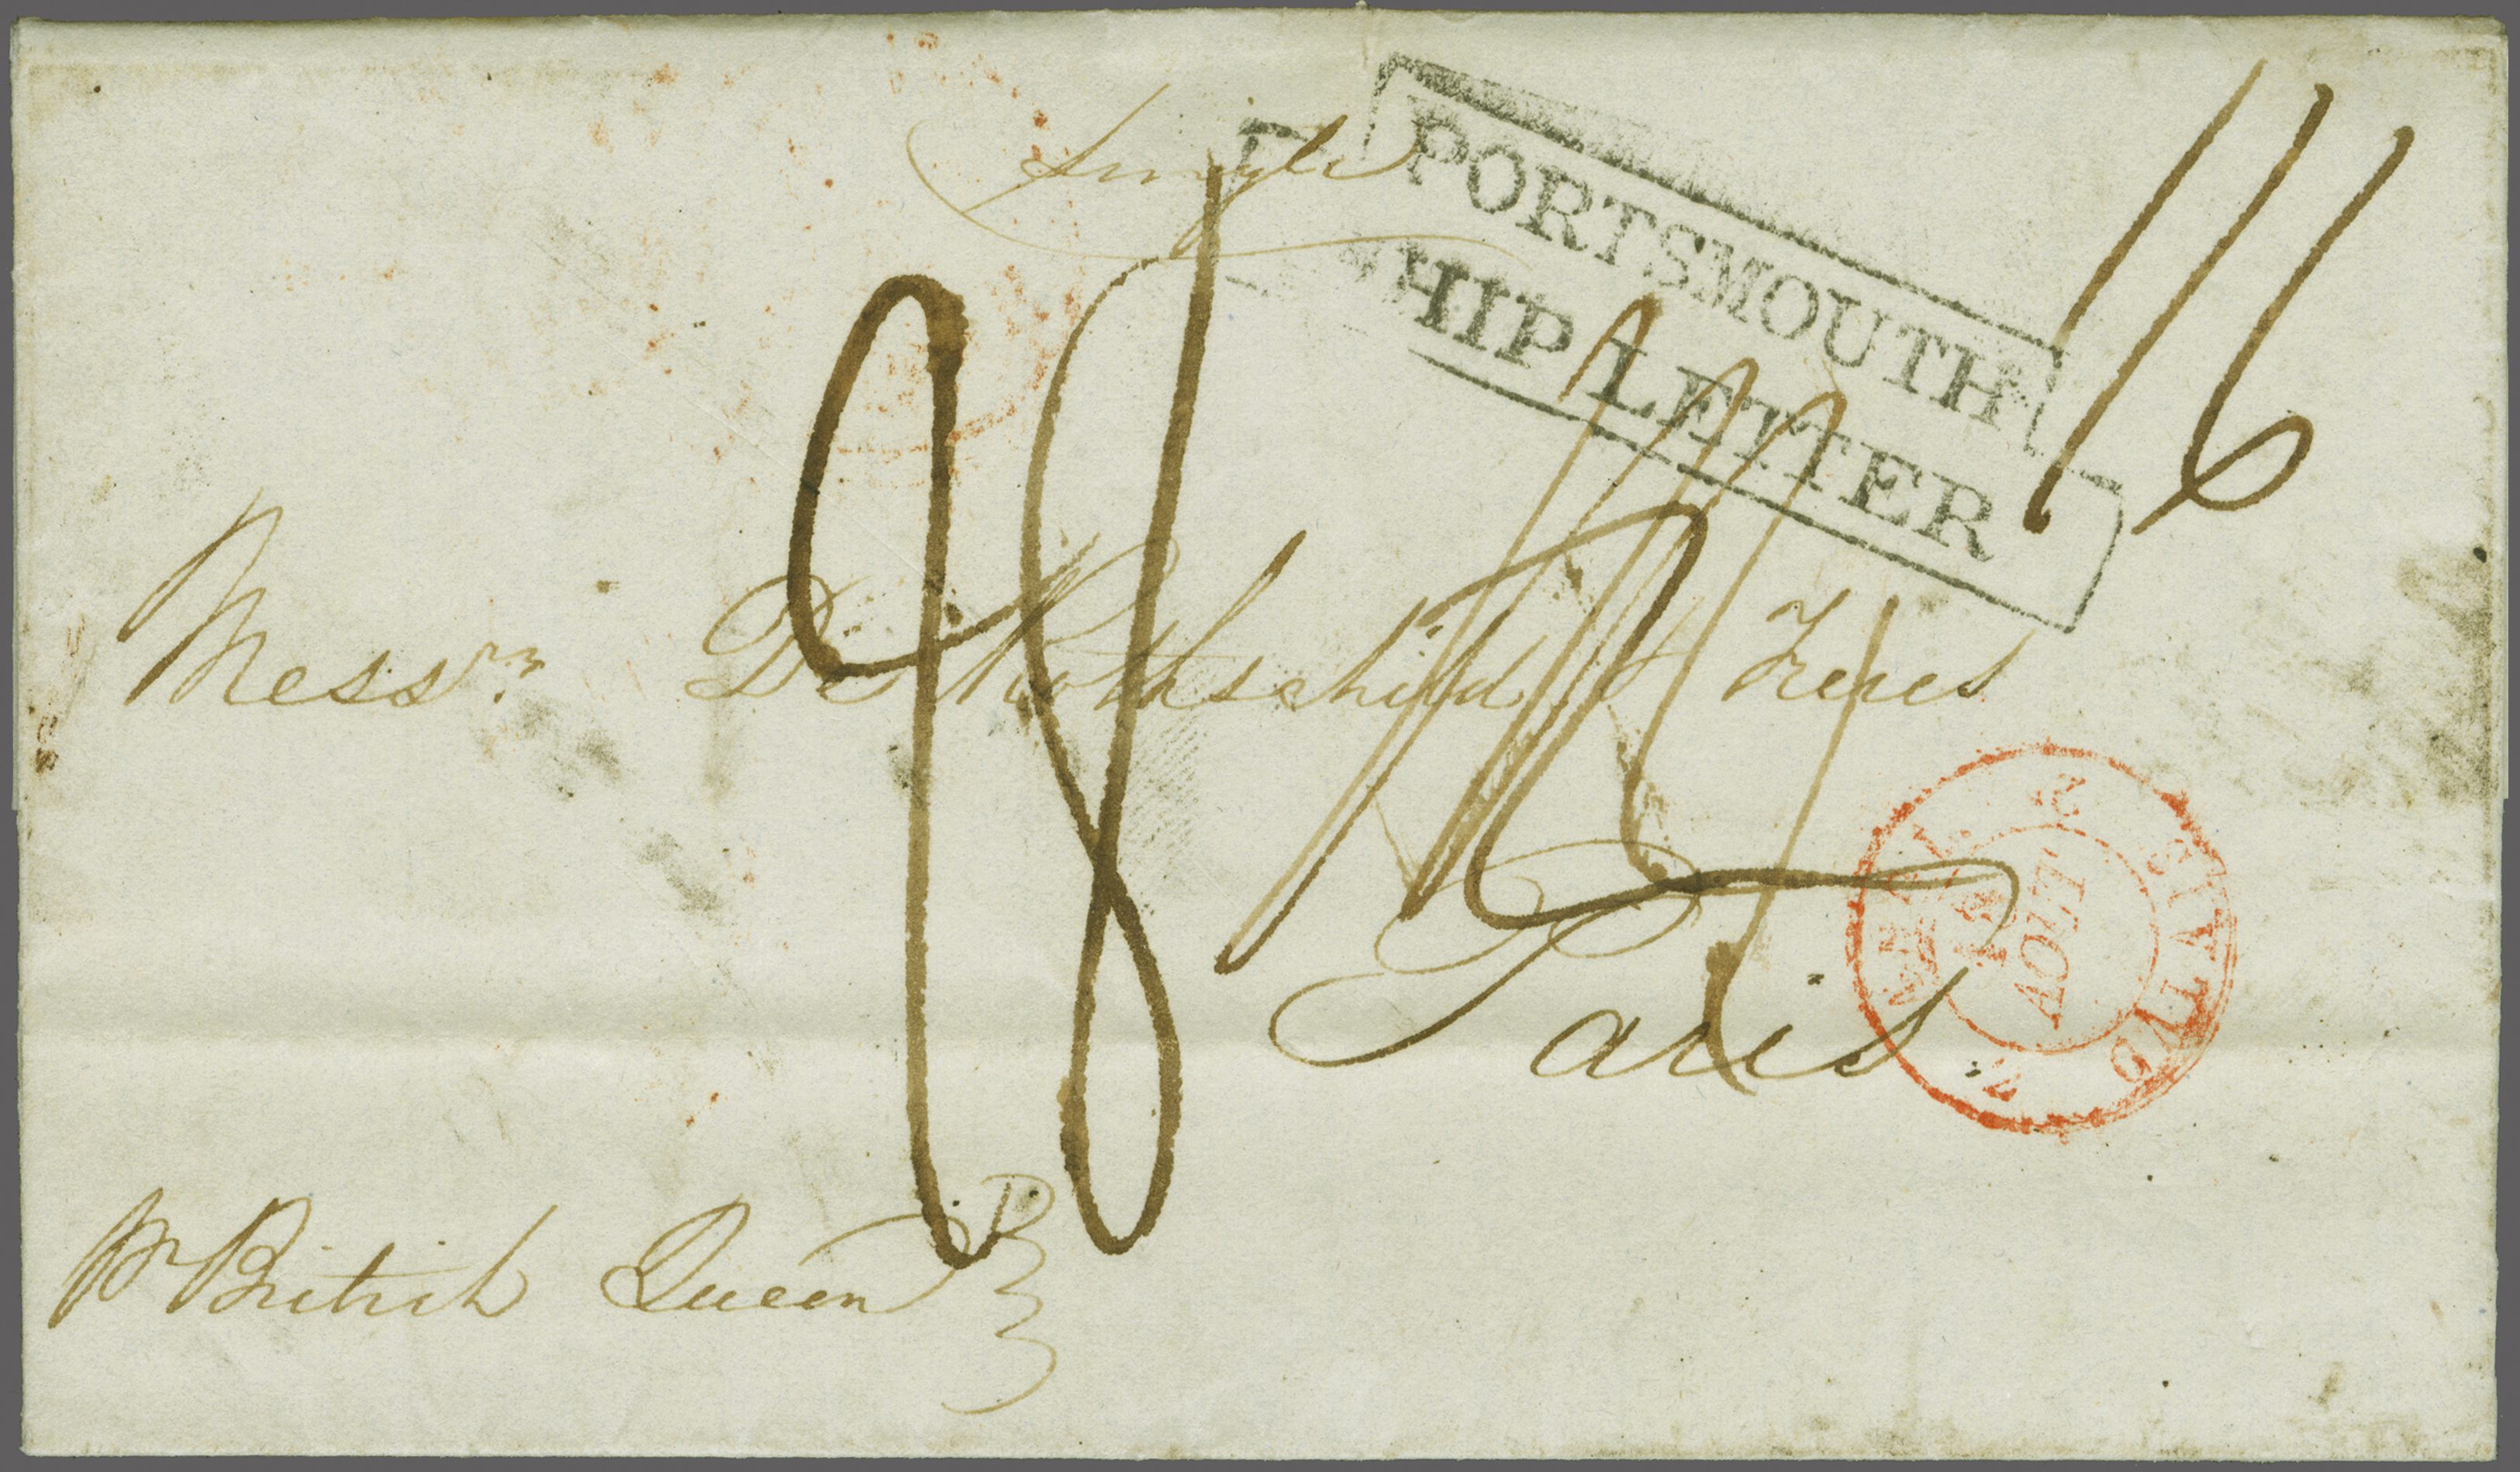 Single
PORTSMOUTH
SHIP LETTER
1/6
Messrs De Rothschild Freres
Paris
2 CALAIS 2
AOUT
Pr British Queen